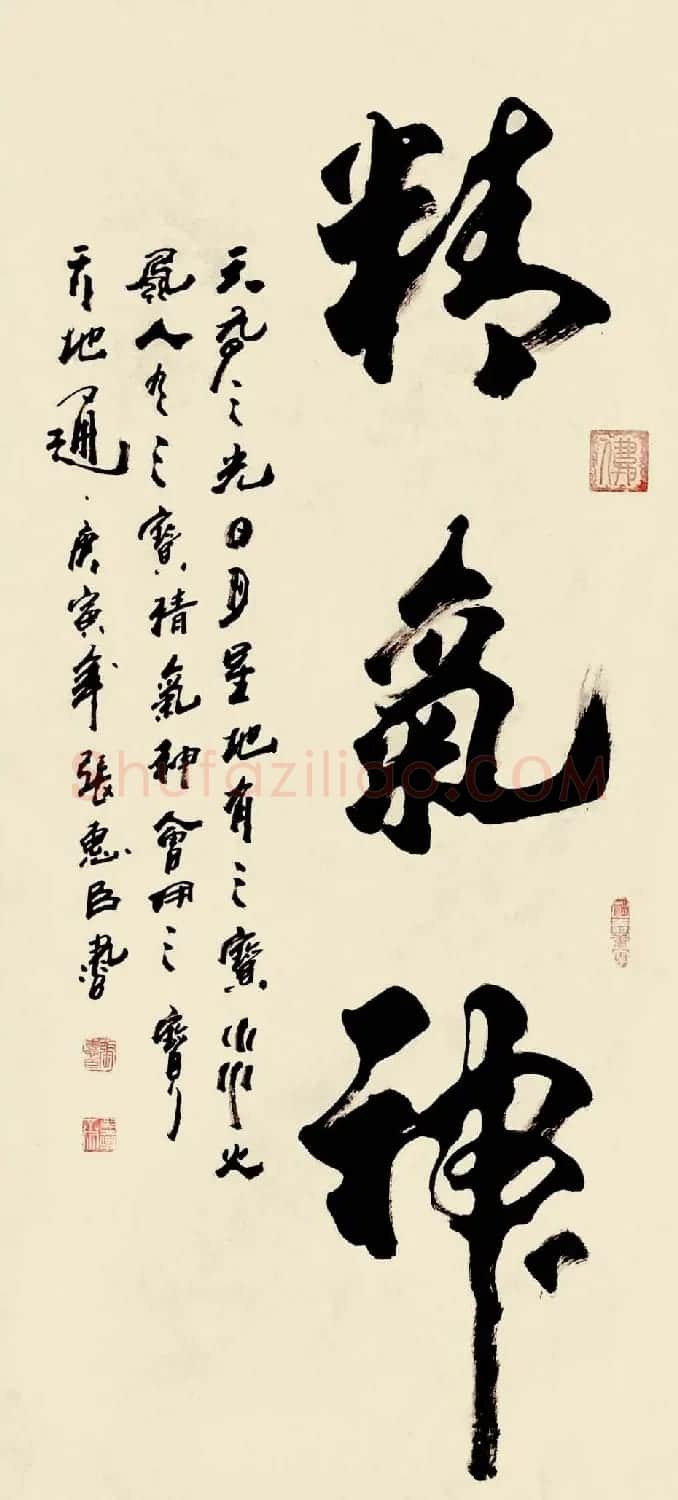 精氣神
天有三光日月星地有三寶水火
風人有三寶精氣神會用三寶
天地通庚寅年張惠臣書
Shufaziliao.COM